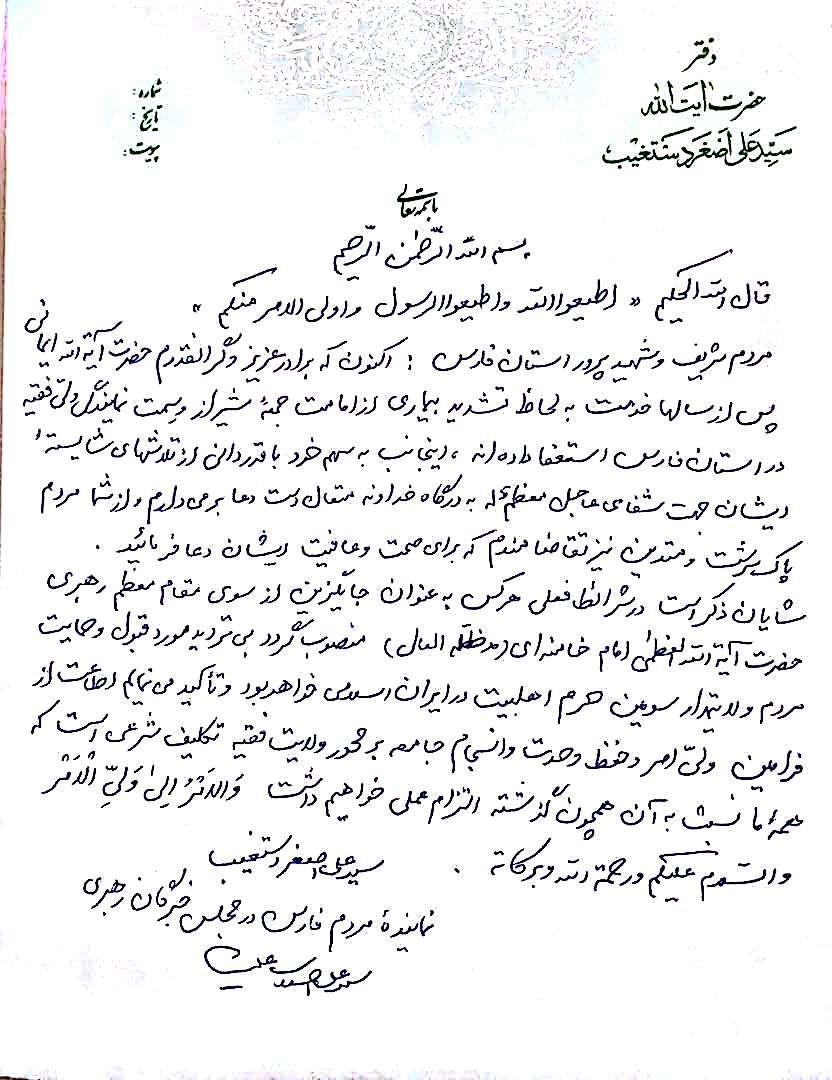 دفتر
حضرت آیت الله
سید علی اصغر دستغیب
شماره:
تاریخ:
پیوست:
باسمه تعالی
بسم الله الرّحمٰن الرّحیم
قال الله الحکیم « اطیعوا الله و اطیعوا الرسول و اولی الامر منکم »
مردم شریف و شهید پرور استان فارس : اکنون که برادر عزیز و گرانقدرم حضرت آیة الله ایمانی
پس از سالها خدمت به لحاظ تشدید بیماری از امامت جمعهٔ شیراز و سمت نمایندگی ولی فقیه
در استان فارس استعفا داده اند ، اینجانب به سهم خود با قدردانی از تلاشهای شایستهٔ
ایشان جهت شفای عاجل معظم له به درگاه خداوند متعال دست دعا برمی دارم و از شما مردم
پاک سرشت و متدین نیز تقاضامندم که برای صحت و عافیت ایشان دعا فرمائید .
شایان ذکر است در شرائط فعلی هرکس به عنوان جایگزین از سوی مقام معظم رهبری
حضرت آیة الله العظمٰی امام خامنه ای (مدظله العالی) منصوب گردد بی تردید مورد قبول و حمایت
مردم ولایتمدار سومین حرم اهلبیت در ایران اسلامی خواهد بود و تأکید می نمایم اطاعت از
فرامین ولیّ امر و حفظ وحدت و انسجام جامعه بر محور ولایت فقیه تکلیف شرعی است که
همهٔ ما نسبت به آن همچون گذشته التزام عملی خواهیم داشت وَالاَمْرُ اِلیٰ وَلیِّ الْاَمْر
والسّلام علیکم ورحمة الله وبرکاته .
سید علی اصغر دستغیب
نمایندهٔ مردم فارس در مجلس خبرگان رهبری